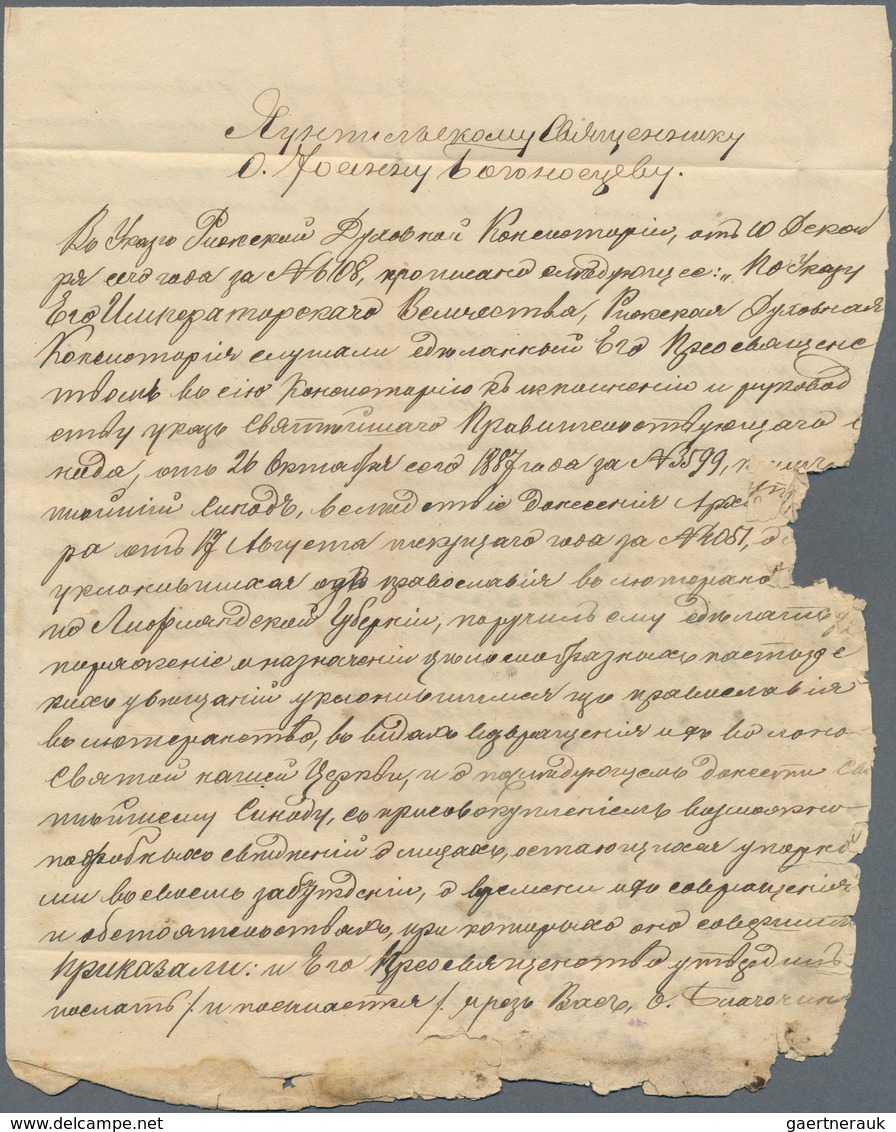 Яунпильскому Священнику
О. Іоанну Богоносцеву.
Въ Указѣ Рижской Духовной Консисторіи, отъ 10 Декаб
ря сего года за № 6108, прописано слѣдующее: „По Указу
Его Императорскаго Величества, Рижская Духовная
Консисторія слушали сданный Его Преосвященс
твомъ въ сію Консисторію къ исполненію и руковод
ству указъ Святѣйшаго Правительствующаго
нода, отъ 26 Октября сего 1887 года за № 3599,
тѣйшій Синодъ, вслѣдствіе донесенія
ра отъ 17 Августа текущаго года за № 4051,
уклонившихся отъ православія въ
по Лифляндской Губерніи, поручилъ ему сдѣлать
поряженіе о назначеніи цѣлесообразныхъ пастырс
кихъ увѣщаній уклонившимся изъ православія
въ лютеранство, въ видахъ возвращенія ихъ въ лоно
Святой нашей Церкви, и о послѣдующемъ донести Свя
тѣйшему Синоду, съ присовокупленіемъ возможно
подробныхъ свѣдѣній о лицахъ, остающихся упорны
ми въ своемъ заблужденіи, о времени ихъ совращенія
и обстоятельствахъ, при которыхъ оно
Приказали: и Его Преосвященство утвердилъ
послать /: и посылается :/ чрезъ Васъ, о. Благочин
gaertnerauk